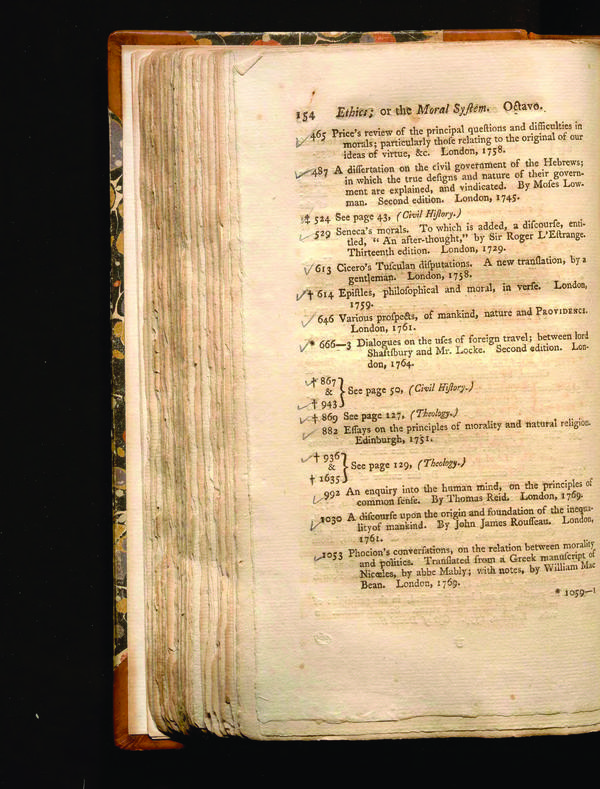 154 Ethics; or the Moral Syſtem. Octavo.
465 Price's review of the principal queſtions and difficulties in
morals; particularly thoſe relating to the original of our
ideas of virtue, &c. London, 1758.
487 A diſſertation on the civil government of the Hebrews;
in which the true deſigns and nature of their govern-
ment are explained, and vindicated. By Moſes Low-
man. Second edition. London, 1745.
‡ 524 See page 43, (Civil Hiſtory.)
529 Seneca's morals. To which is added, a diſcourſe, enti-
tled, “ An after-thought,” by Sir Roger L'Eſtrange.
Thirteenth edition. London, 1729.
613 Cicero's Tuſculan diſputations. A new tranſlation, by a
gentleman. London, 1758.
† 614 Epiſtles, philoſophical and moral, in verſe. London,
1759.
646 Various proſpects, of mankind, nature and PROVIDENCE.
London, 1761.
* 666—3 Dialogues on the uſes of foreign travel; between lord
Shaftſbury and Mr. Locke. Second edition. Lon-
don, 1764.
† 867
& } See page 50, (Civil Hiſtory.)
† 943
† 869 See page 127, (Theology.)
882 Eſſays on the principles of morality and natural religion.
Edinburgh, 1751.
† 936
& } See page 129, (Theology.)
† 1635
992 An enquiry into the human mind, on the principles of
common ſenſe. By Thomas Reid. London, 1769.
1030 A diſcourſe upon the origin and foundation of the inequa-
lity of mankind. By John James Rouſſeau. London,
1761.
1053 Phocion's converſations, on the relation between morality
and politics. Tranſlated from a Greek manuſcript of
Nicocles, by abbe Mably; with notes, by William Mac
Bean. London, 1769.
* 1059—1